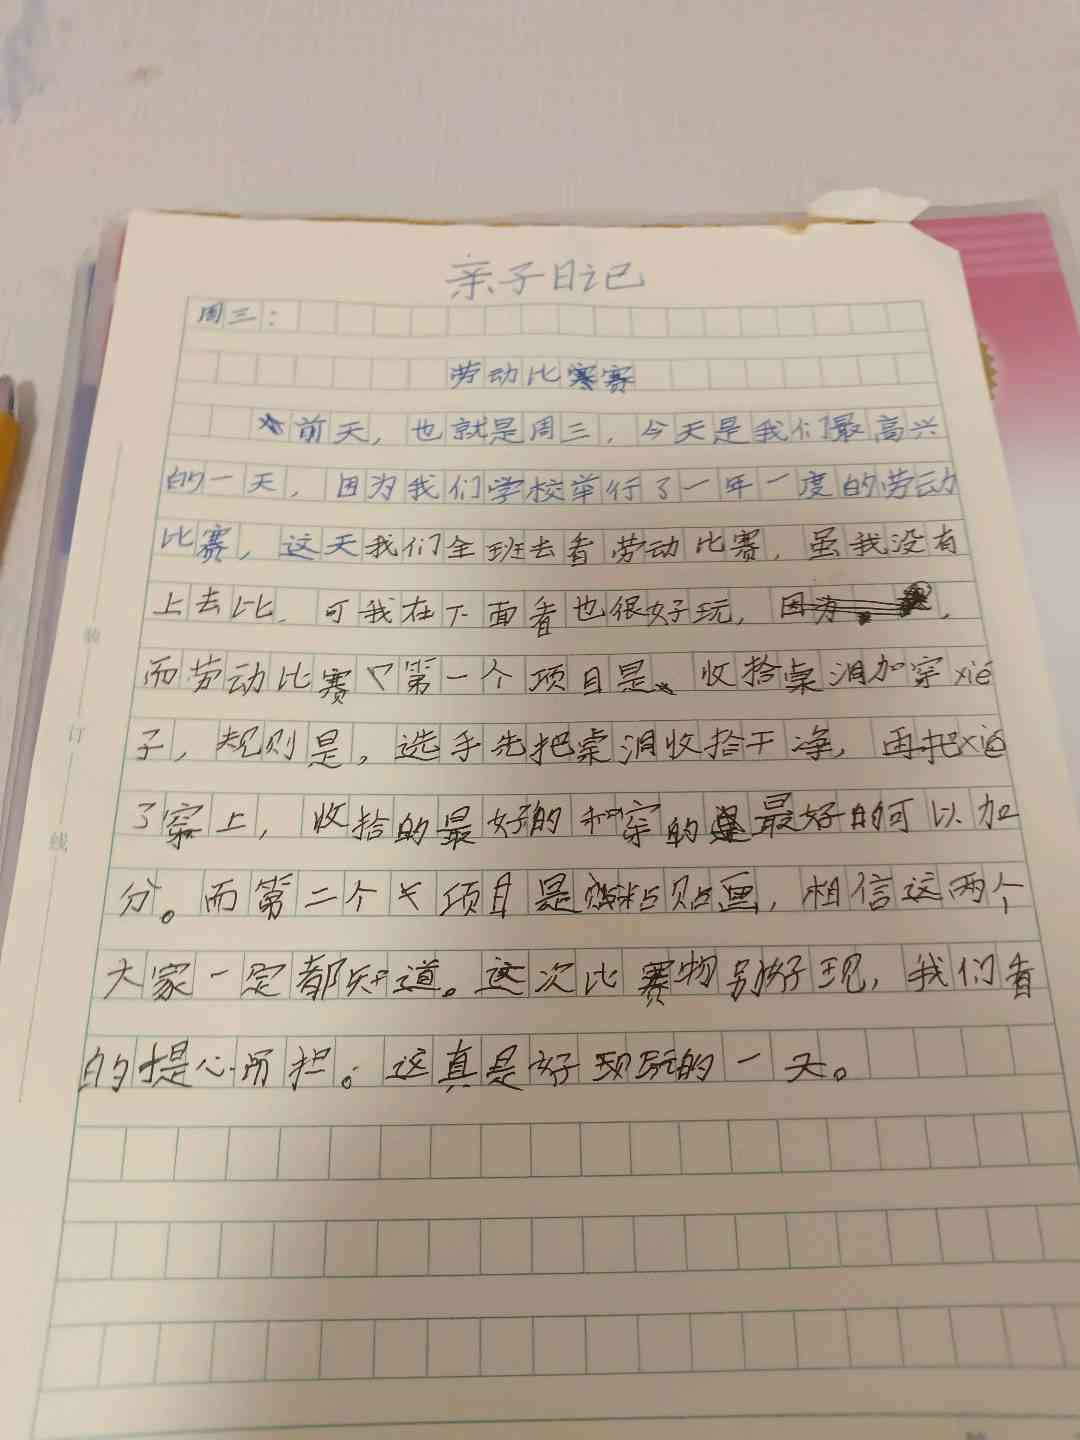 亲子日记
周三：
劳动比赛
前天，也就是周三，今天是我们最高兴
的一天，因为我们学校举行了一年一度的劳动
比赛，这天我们全班去看劳动比赛，虽我没有
上去比，可我在下面看也很好玩，因为，
而劳动比赛第一个项目是、收拾桌洞加穿xié
子，规则是，选手先把桌洞收拾干净，再把xié
了穿上，收拾的最好的和穿的最好的可以加
分。而第二个项目是粘贴画，相信这两个
大家一定都知道。这次比赛物别好现，我们看
的提心而担。这真是好玩的一天。
装
订
线